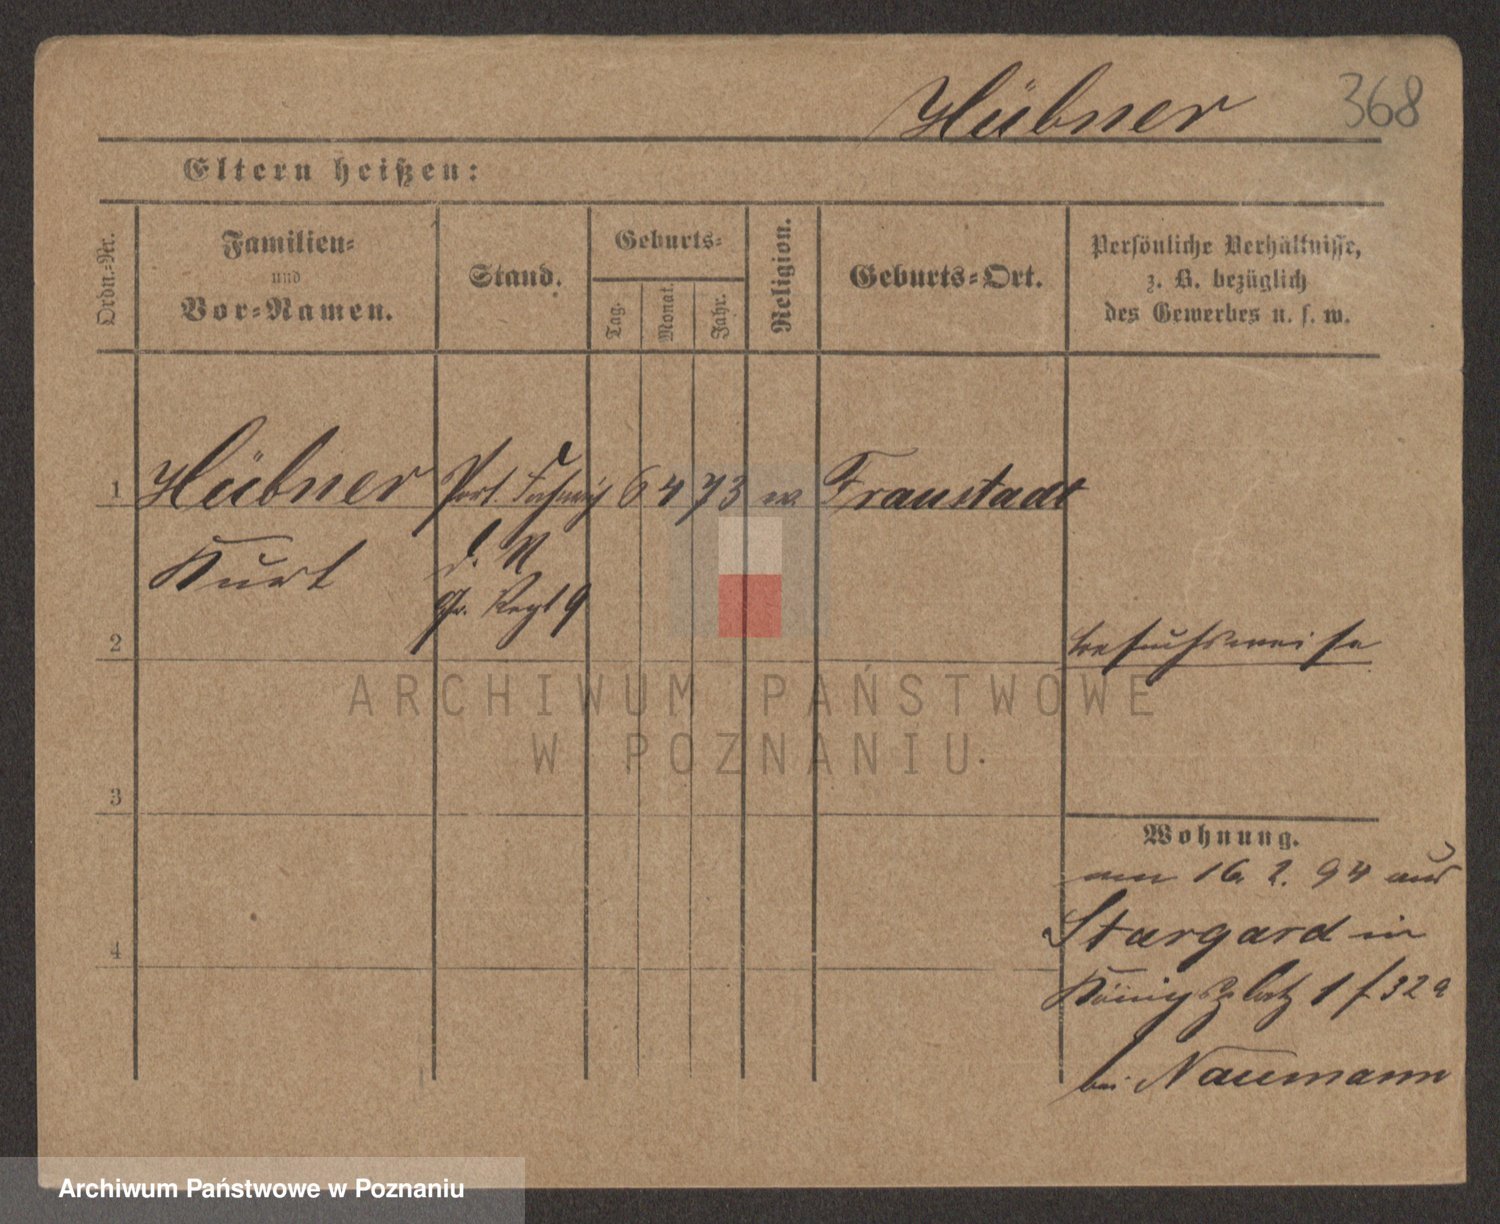 Hübner 368
Eltern heißen:
Ordn.-Nr.
Familien-
und
Vor-Namen.
Stand.
Geburts-
Tag.
Monat.
Jahr.
Religion.
Geburts-Ort.
Persönliche Verhältnisse,
z. B. bezüglich
des Gewerbes u. s. w.
1 Hübner Port. 6 4 73 Fraustadt
Kurt
Gr. Regt 9
2
besuchsweise
3
Wohnung.
16. 2. 94 aus
4
Stargard in
Königsplatz 1 f 32a
bei Naumann
ARCHIWUM PAŃSTWOWE
W POZNANIU
Archiwum Państwowe w Poznaniu